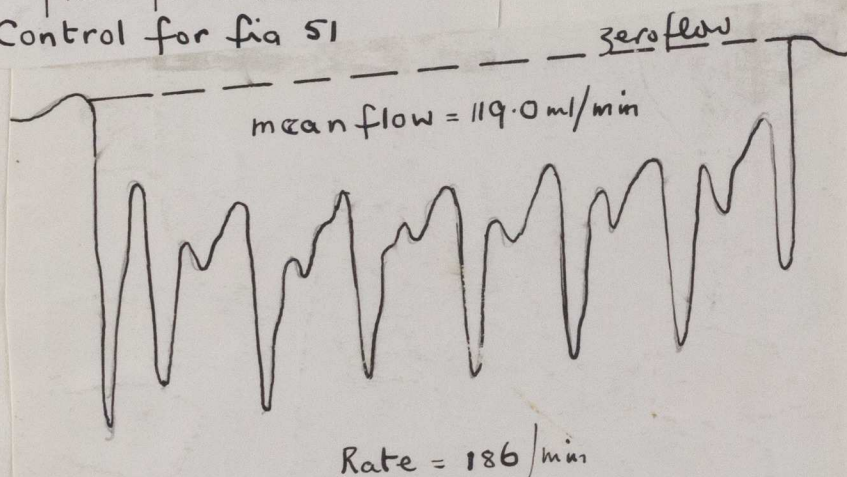 Control for fig 51
zero flow
mean flow = 119.0 ml/min
Rate = 186/min